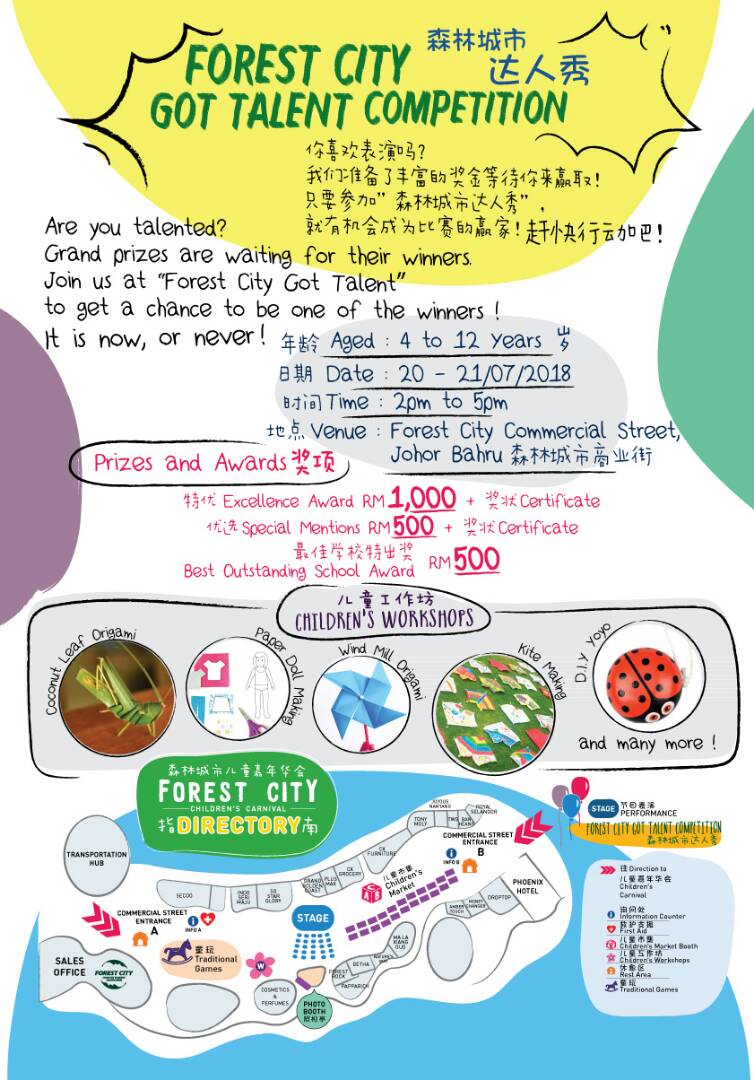 FOREST CITY 森林城市
达人秀
GOT TALENT COMPETITION
你喜欢表演吗?
我们准备了丰富的奖金等待你来赢取!
只要参加"森林城市达人秀",
就有机会成为比赛的赢家!赶快行云加巴!
Are you talented?
Grand prizes are waiting for their winners.
Join us at "Forest City Got Talent"
to get a chance to be one of the winners !
It is now, or never!
年龄 Aged : 4 to 12 years 岁
日期 Date : 20 - 21/07/2018
时间 Time : 2pm to 5pm
地点 Venue : Forest City Commercial Street,
Johor Bahru 森林城市商业街
Prizes and Awards 奖项
特优 Excellence Award RM 1,000 + 奖状 Certificate
优选 Special Mentions RM 500 + 奖状 Certificate
最佳学校特出奖
Best Outstanding School Award RM 500
儿童工作坊
CHILDREN'S WORKSHOPS
Coconut Leaf Origami
Paper Doll Making
Wind Mill Origami
Kite Making
D.I.Y Yoyo
and many more !
森林城市儿童嘉年华会
FOREST CITY
CHILDREN'S CARNIVAL
指 DIRECTORY 南
TRANSPORTATION
HUB
COMMERCIAL STREET
ENTRANCE
A
INFO A
SALES
OFFICE
FOREST CITY
SECOO
INDO
SERI
MAJU
SG
STAR
GLORY
GRAND
GOLDEN
COAST
PLUS
MAX
CK
GROCERY
CK
FURNITURE
TONY
MOLY
JOYOUS
NANYANG
TWG
BAN
HEANG
ROYAL
SELANGOR
COMMERCIAL STREET
ENTRANCE
B
INFO B
儿童市集
Children's
Market
STAGE
童玩
Traditional
Games
W
COSMETICS
&
PERFUMES
PHOTO
BOOTH
照相亭
FOREST
ROCK
PAPPARICH
BETHA
MA LA
XIANG
GUO
AMBER
TOUCH
MONEY
CHANGER
DROPTOP
PHOENIX
HOTEL
STAGE 节目表演
PERFORMANCE
FOREST CITY GOT TALENT COMPETITION
森林城市达人秀
往 Direction to
儿童嘉年华会
Children's
Carnival
询问处
Information Counter
救护支援
First Aid
儿童市集
Children's Market Booth
儿童工作坊
Children's Workshops
休憩区
Rest Area
童玩
Traditional Games